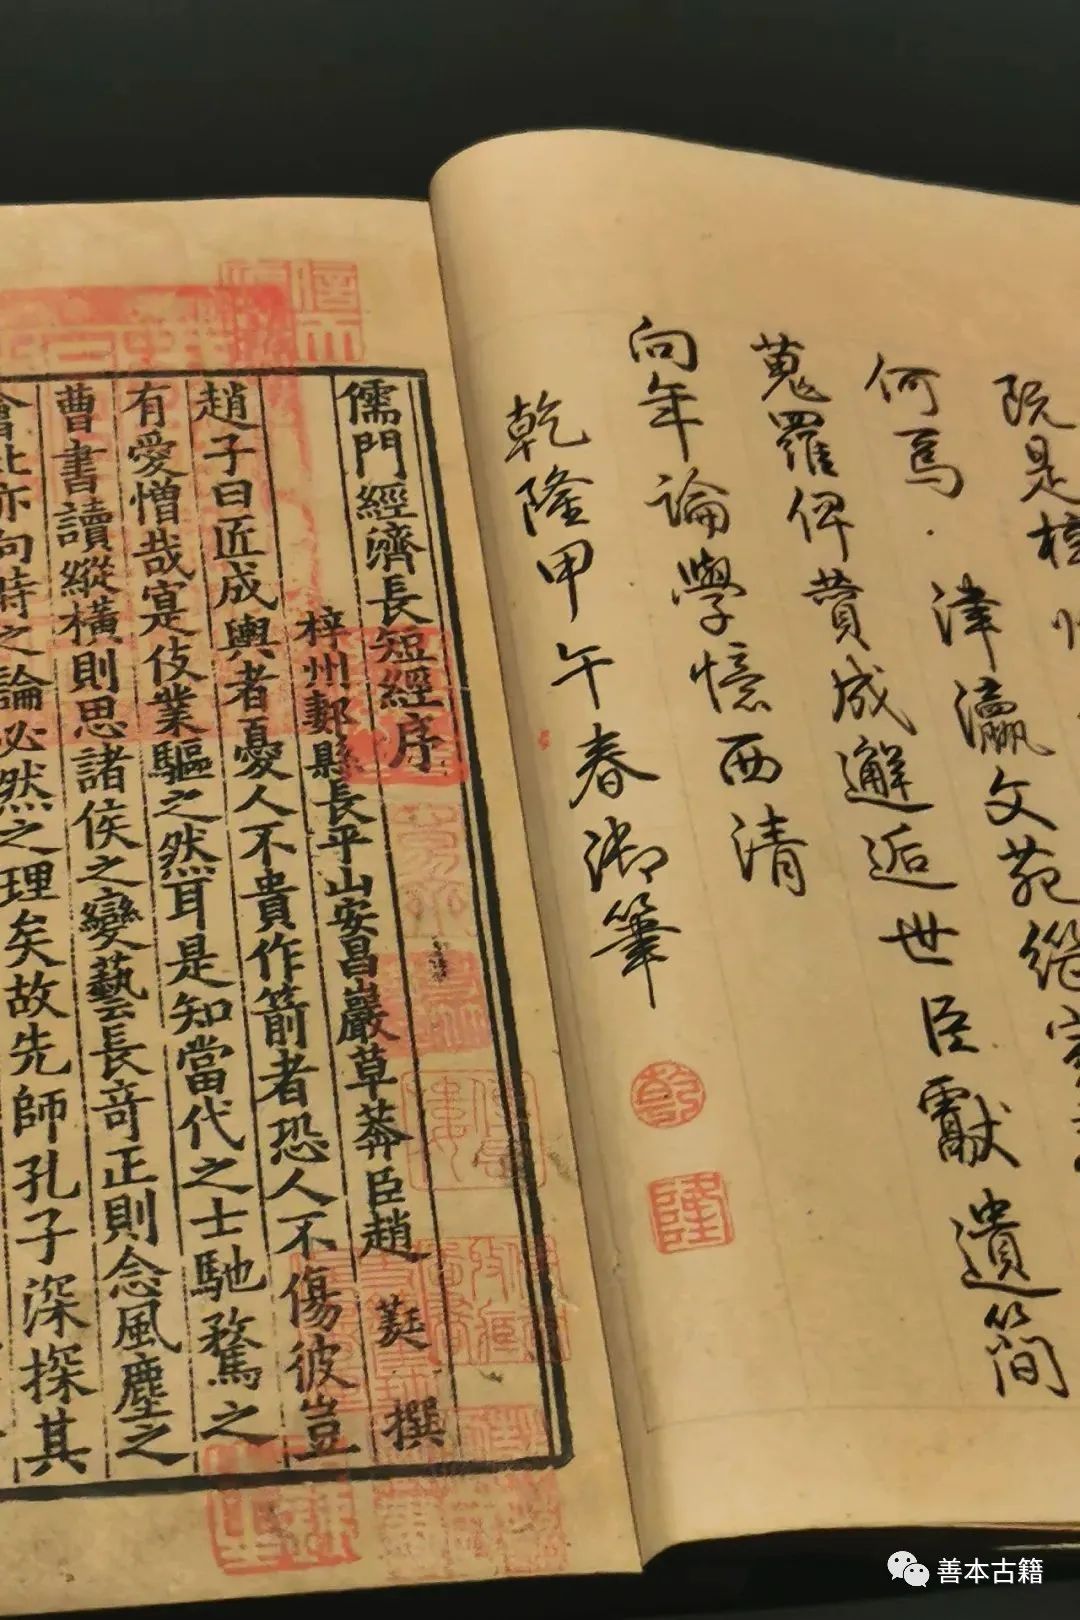 既是
何焉津瀛文苑
蒐羅俾贊成邂逅世臣獻遺簡
向年論學憶西清
乾隆甲午春御筆
乾
隆
儒門經濟長短經序
梓州郪縣長平山安昌巖草莽臣趙 蕤 撰
趙子曰匠成輿者憂人不貴作箭者恐人不傷彼豈
有愛憎哉寔伎業驅之然耳是知當代之士馳騖之
曹書讀縱橫則思諸侯之變藝長竒正則念風塵之
會此亦向時之論必然之理矣故先師孔子深探其
善本古籍